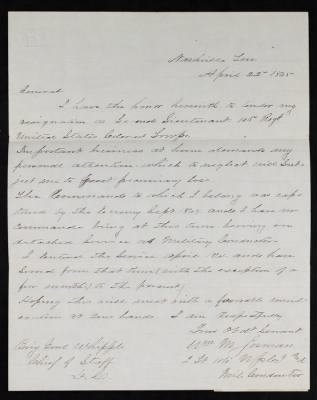 Nashville Ten
April 22nd 1865
General
I have the honor herewith to tender my
resignation as Second Lieutenant Regt
United States Colored Troops.
Important business at home demands my
personal attention which to neglect will sub-
ject me to great pecuniary loss.
The Command to which I belong was cap
tured by the enemy Sept and I have no
command being at this time
on
detached service as Military Conductor.
I entered the service and have
served from that time (with the exception of a
few months) to the present,
Hoping this will meet with a favorable consid-
eration at your hands. I am respectfully
Your Obdt Servant
Wm M.
2 Lt
Mil. Conductor
Brig Genl Whipple
Chief of Staff